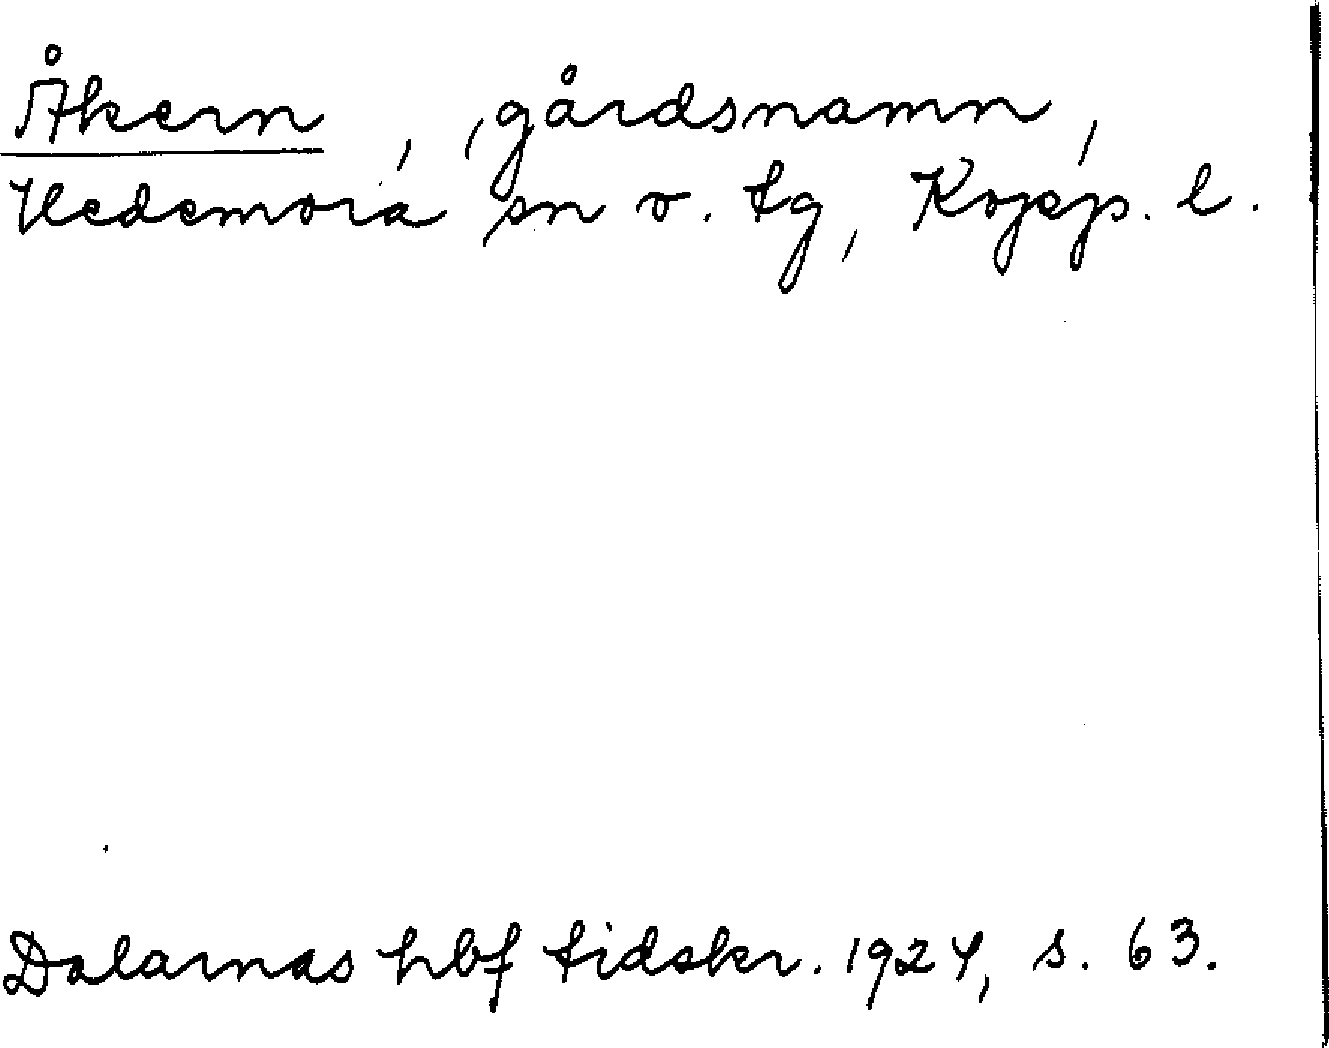 Åkern, gårdsnamn,
Hedemora sn o. tg, Kopp. l.
Dalarnas hbf tidskr. 1924, s. 63.